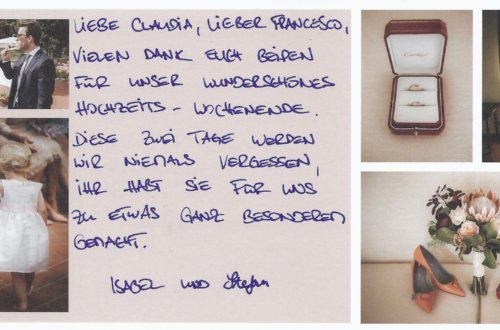 LIEBE CLAUDIA, LIEBER FRANCESCO,
VIELEN DANK EUCH BEIDEN
FÜR UNSER WUNDERSCHÖNES
HOCHZEITS - WOCHENENDE.
DIESE ZWEI TAGE WERDEN
WIR NIEMALS VERGESSEN,
IHR HABT SIE FÜR UNS
ZU ETWAS GANZ BESONDEREM
GEMACHT.
ISABEL UND Stefan
Cartier